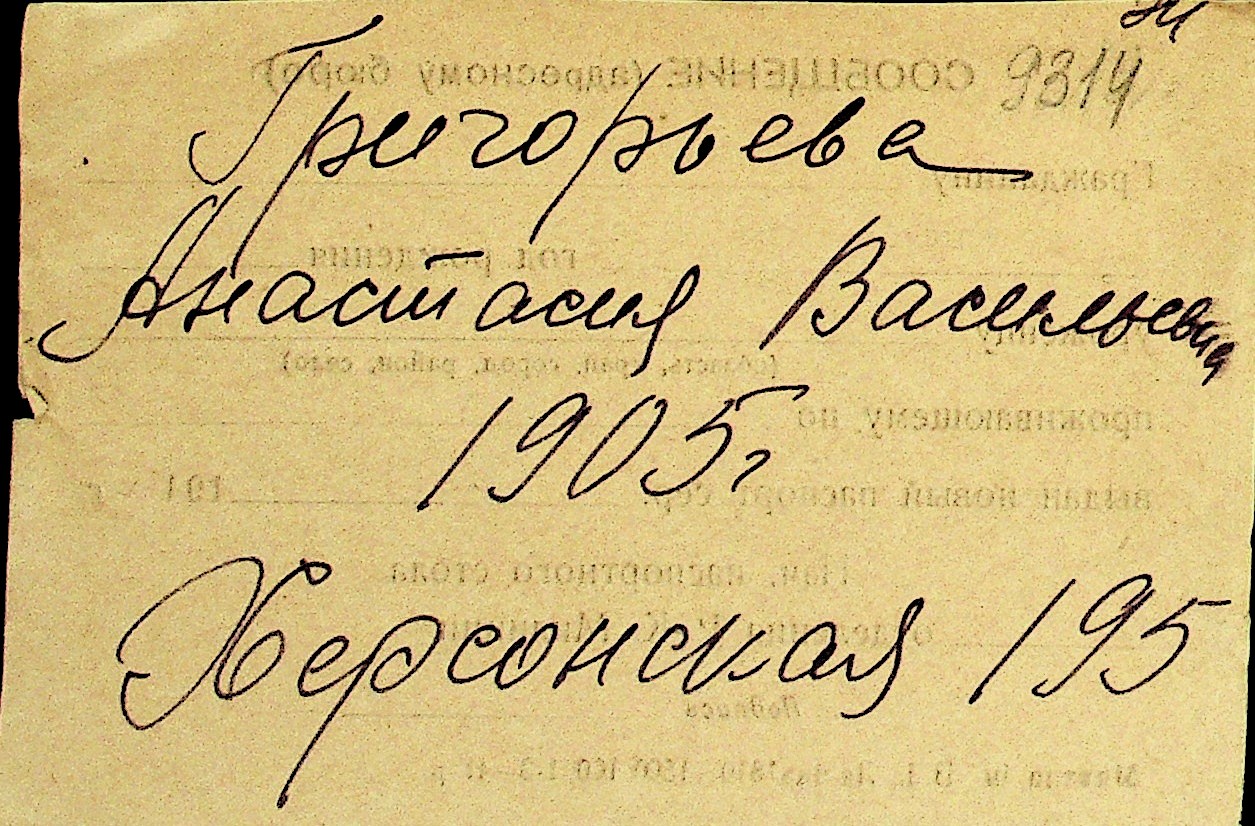 9314
Григорьева
Анастасия Васильевна
1905г
Херсонская 195
СООБЩЕНИЕ (адресному бюро)
Гражданину
год рождения
уроженцу
(область, край, город, район, село)
проживающему по
выдан новый паспорт сер. 191 г.
Нач. паспортного стола
отделения Р. К. Милиции
Подпись